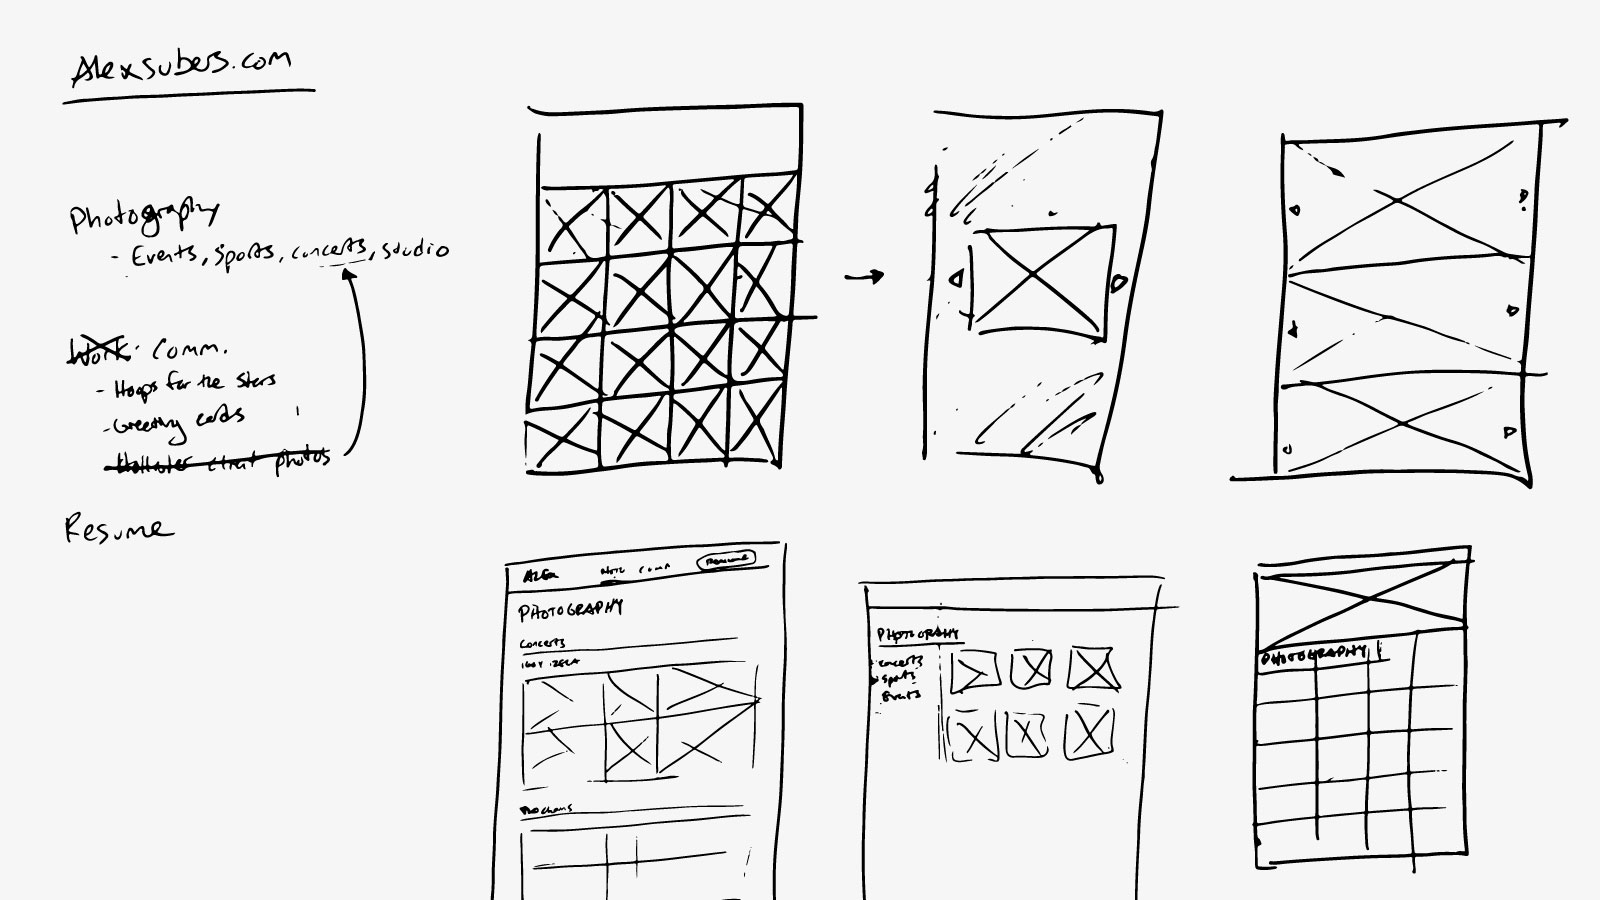 Alexsubers.com
Photography
- Events, Sports, concerts, studio
Work Comm.
- Hoops for the Stars
- Greeting cards
photos
Resume
ALEX Comm Resume
PHOTOGRAPHY
Concerts
IGGY IZELA
PHOTOGRAPHY
Concerts
Sports
Events
PHOTOGRAPHY